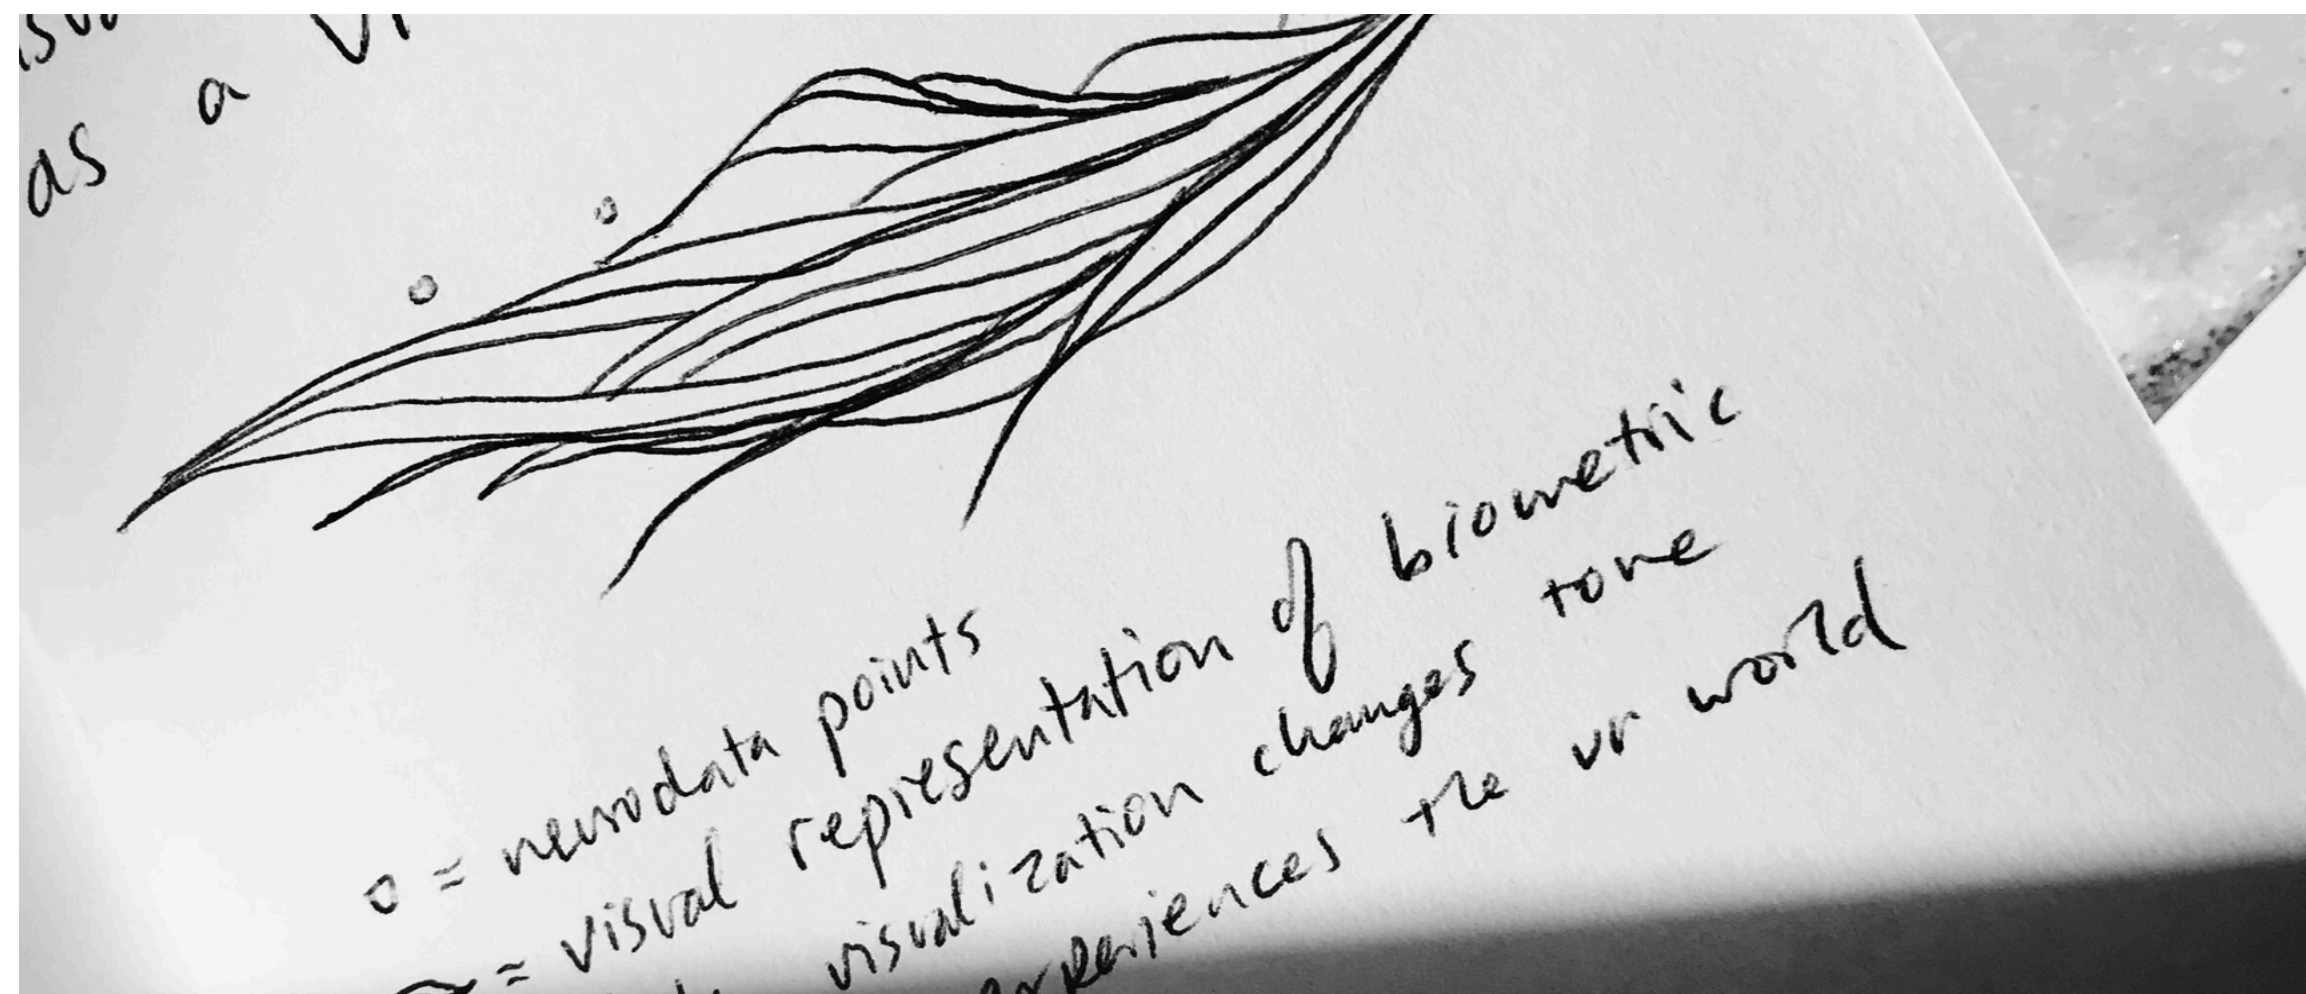 as a
o = neurodata points
= visual representation of biometric
visualization changes tone
experiences the vr world